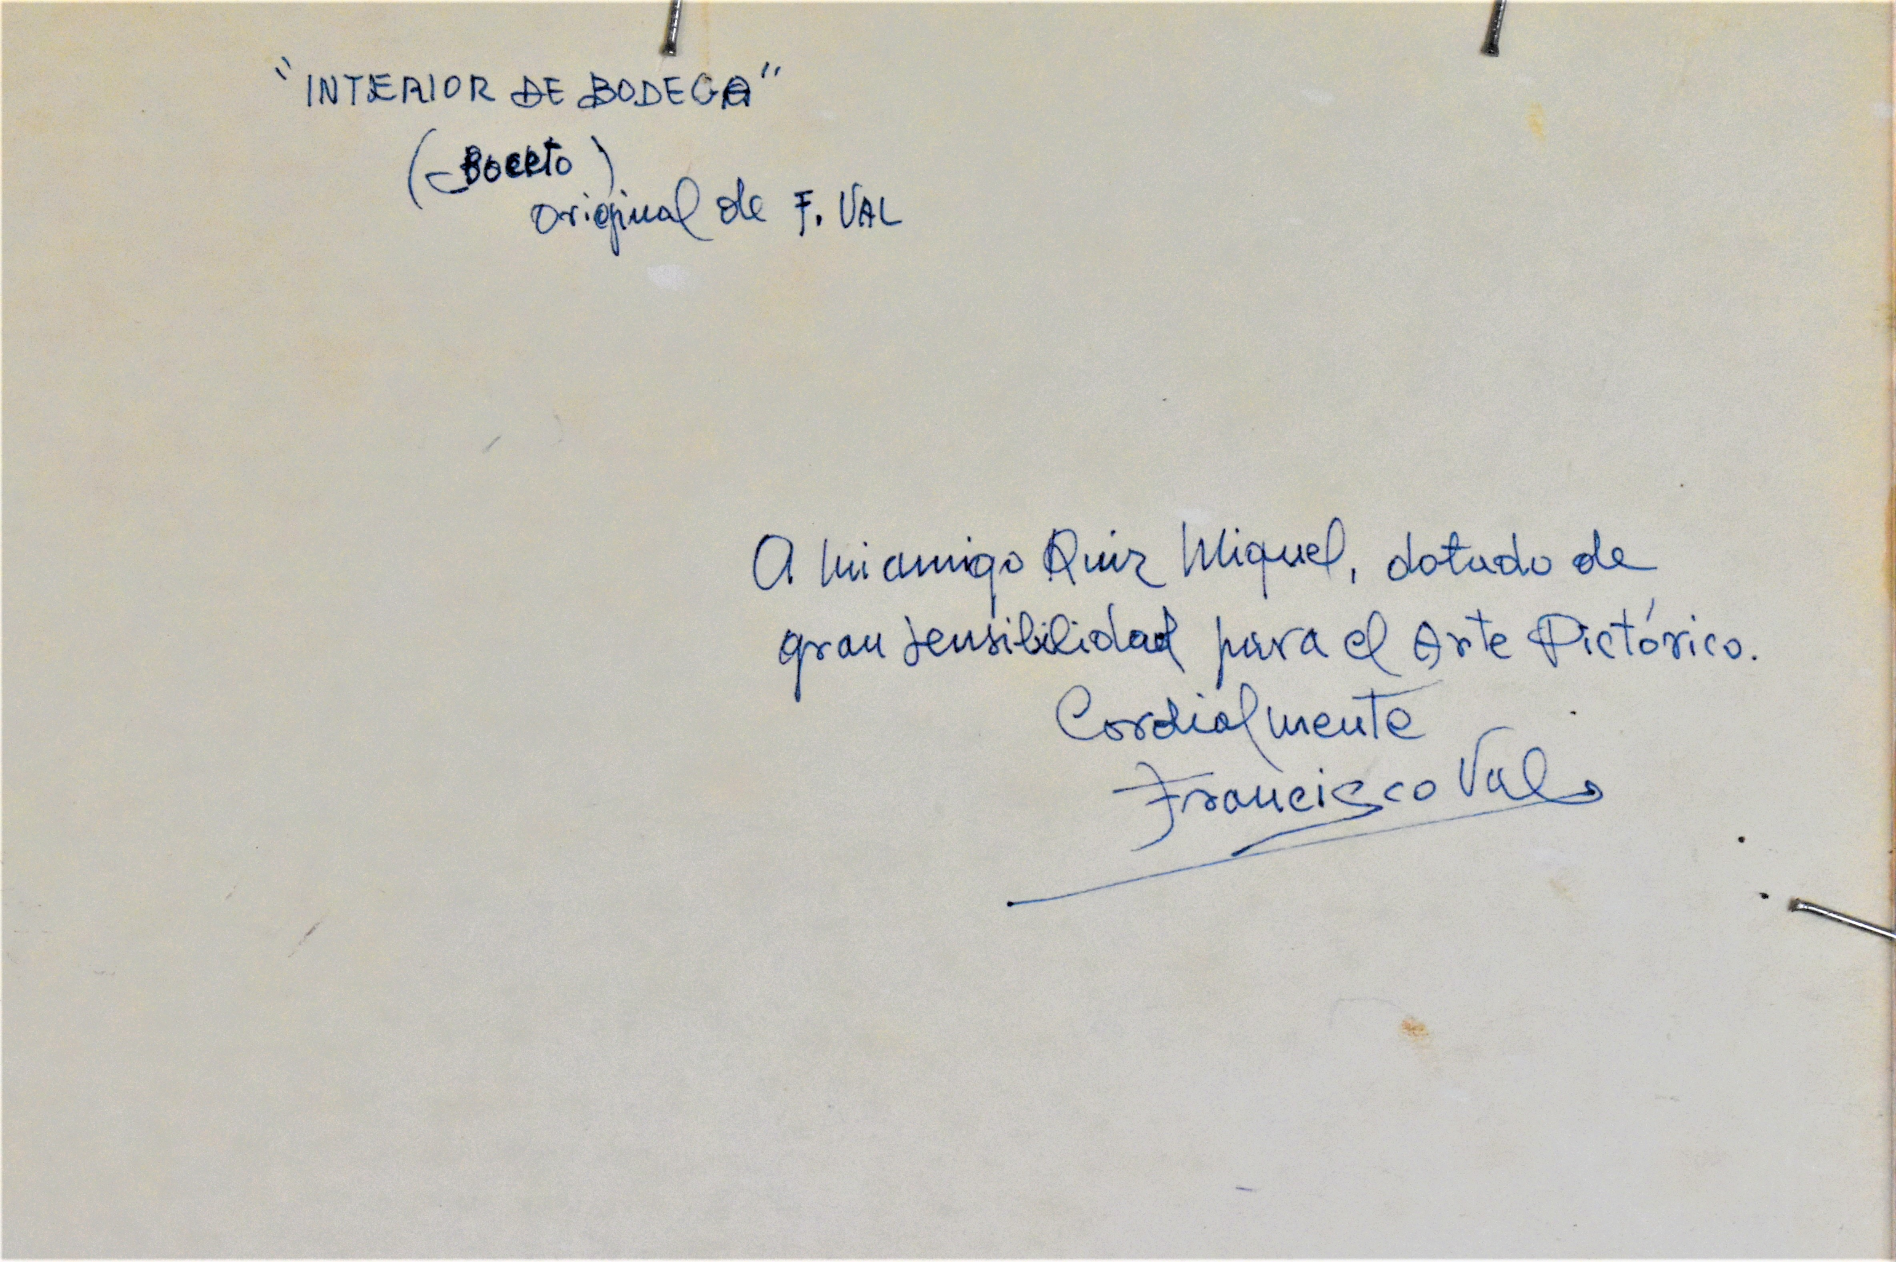 "INTERIOR DE BODEGA"
(Boceto)
original de F. VAL
A mi amigo Ruiz Miquel, dotado de
gran sensibilidad para el Arte Pictórico.
Cordialmente
Francisco Val